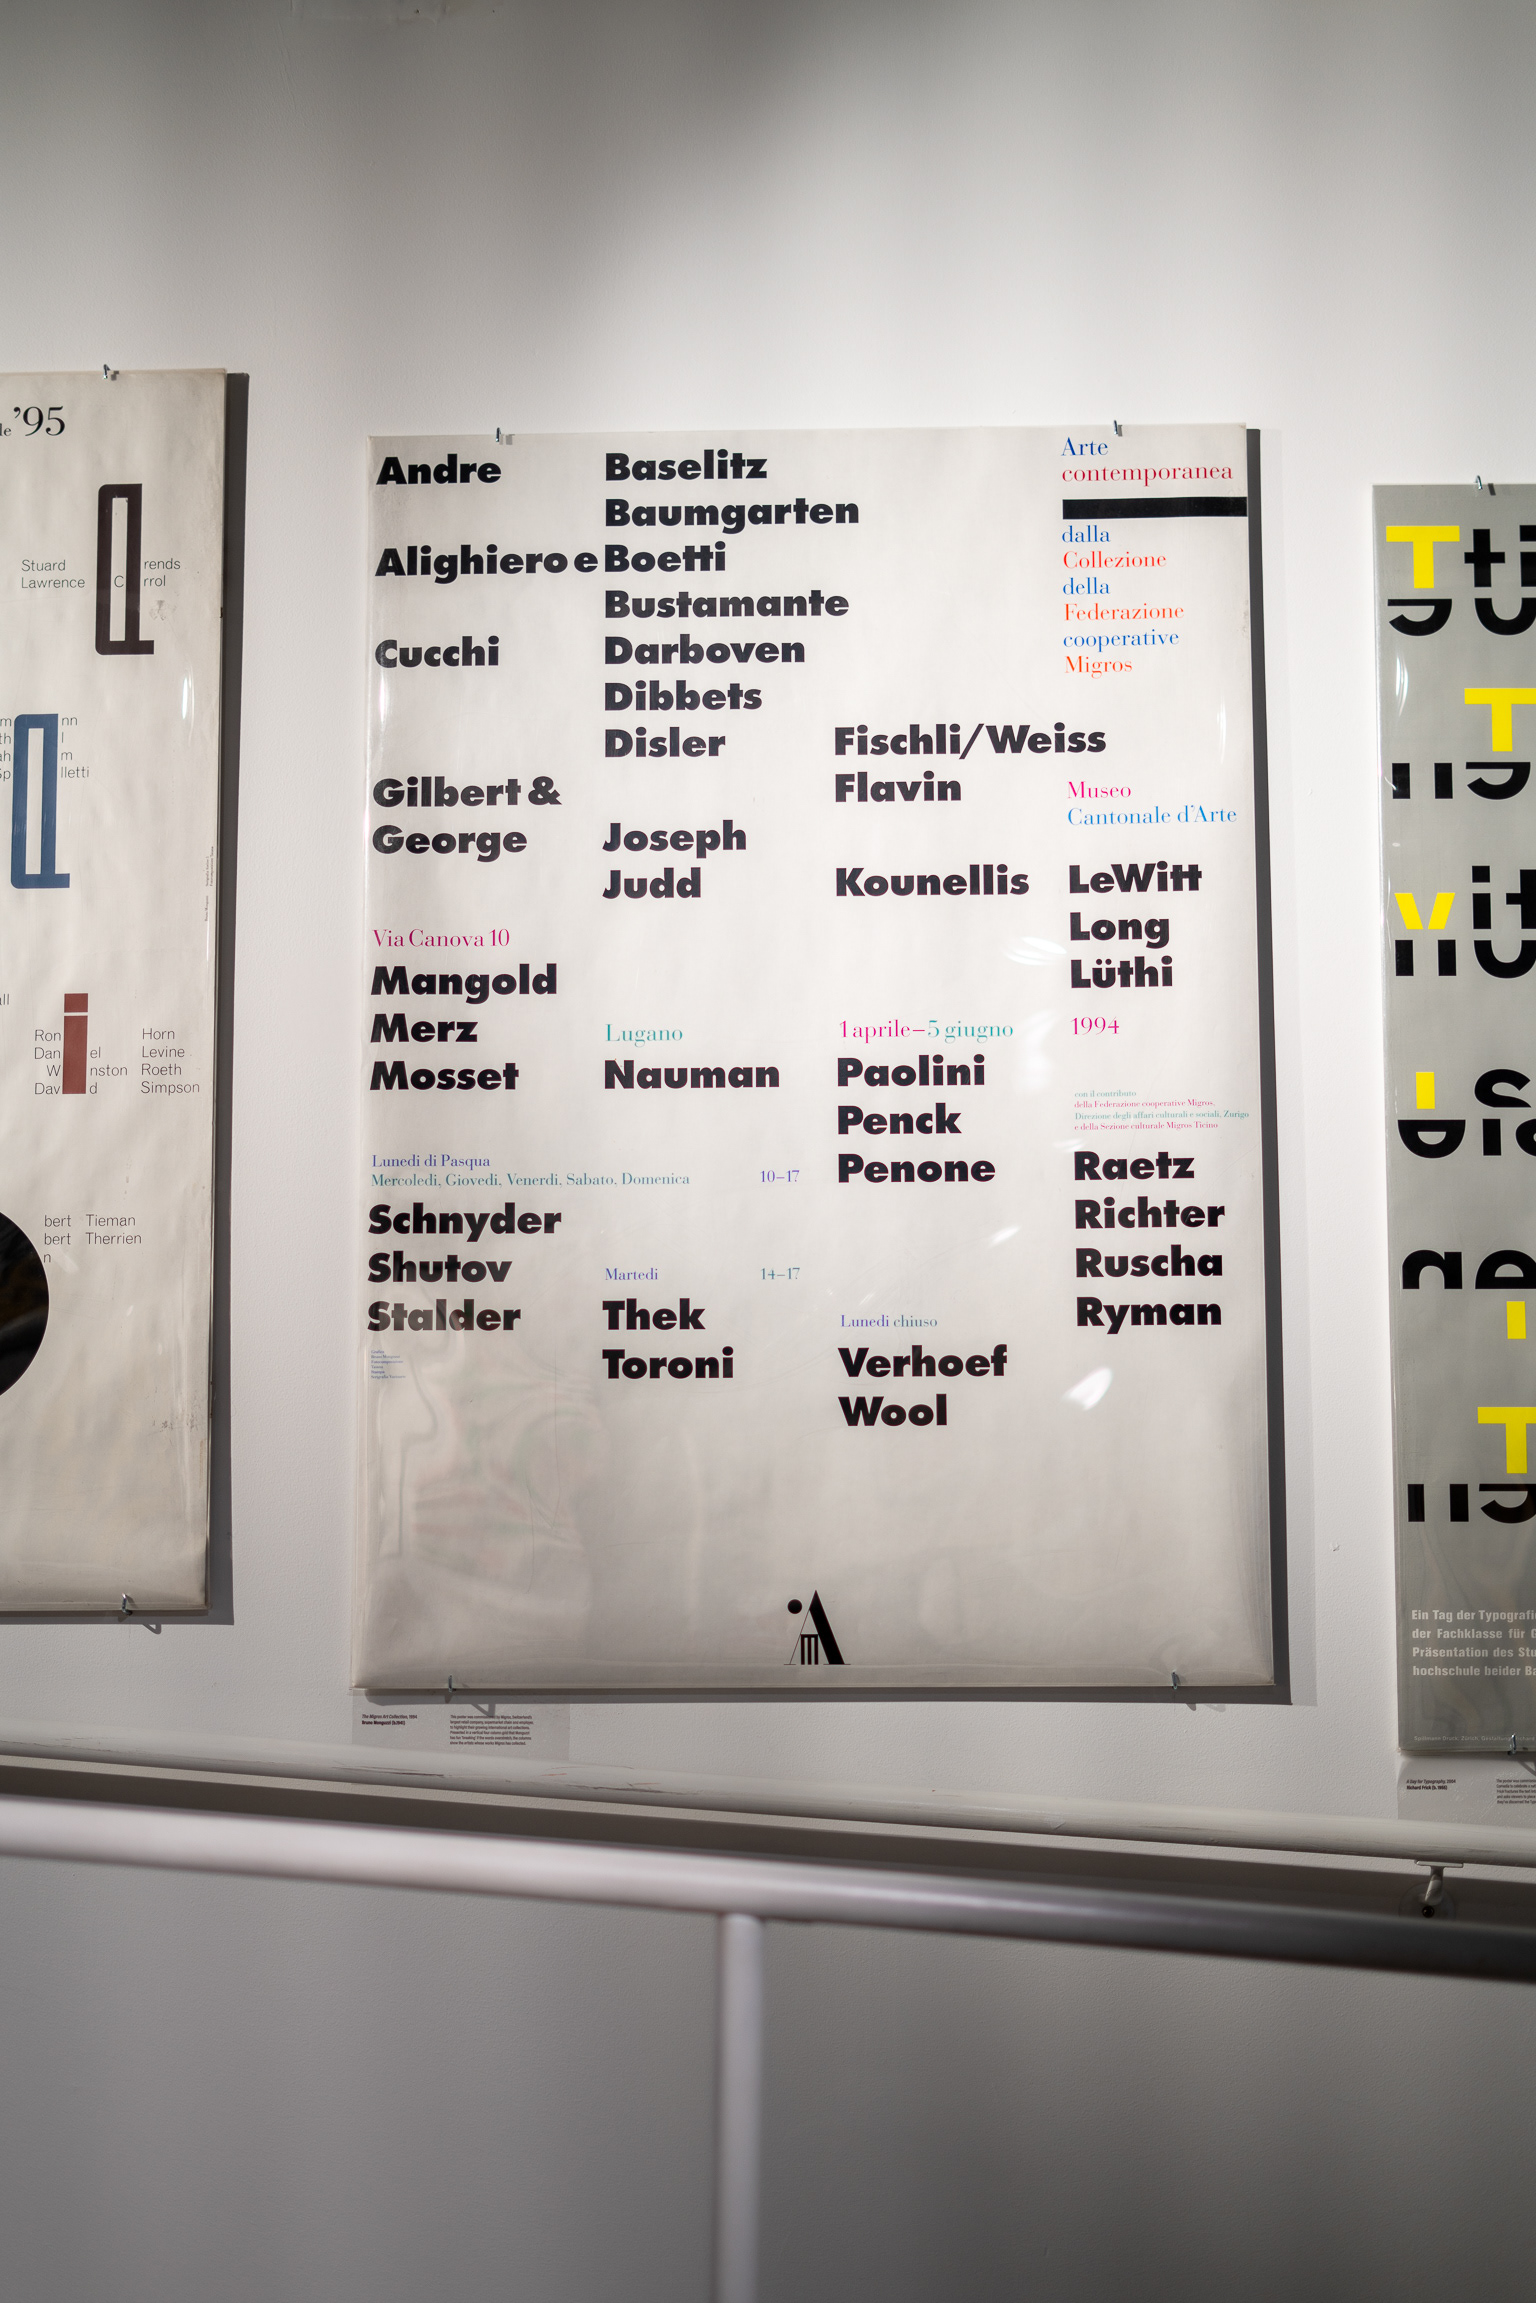 '95
Stuard
rends
Lawrence
C
rrol
nn
l
m
lletti
Ron
Horn
Dan
i
el
Levine
W
nston
Roeth
Dav
d
Simpson
bert
Tieman
bert
Therrien
n
Andre
Baselitz
Baumgarten
Alighiero e Boetti
Bustamante
Cucchi
Darboven
Dibbets
Disler
Fischli/Weiss
Gilbert &
Flavin
George
Joseph
Judd
Kounellis
LeWitt
Long
Lüthi
Arte
contemporanea
dalla
Collezione
della
Federazione
cooperative
Migros
Museo
Cantonale d'Arte
Via Canova 10
Mangold
Merz
Mosset
Lugano
Nauman
1 aprile–5 giugno
1994
Paolini
Penck
Penone
con il contributo
della Federazione cooperative Migros,
Direzione degli affari culturali e sociali, Zurigo
e della Sezione culturale Migros Ticino
Raetz
Richter
Ruscha
Ryman
Lunedì di Pasqua
Mercoledì, Giovedì, Venerdì, Sabato, Domenica
10–17
Schnyder
Shutov
Stalder
Martedì
14–17
Thek
Toroni
Lunedì chiuso
Verhoef
Wool
The Migros Art Collection, 1994
Bruno Monguzzi (b.1941)
Ein Tag der Typografi
der Fachklasse für G
Präsentation des Stu
hochschule beider Ba
A Day for Typography,